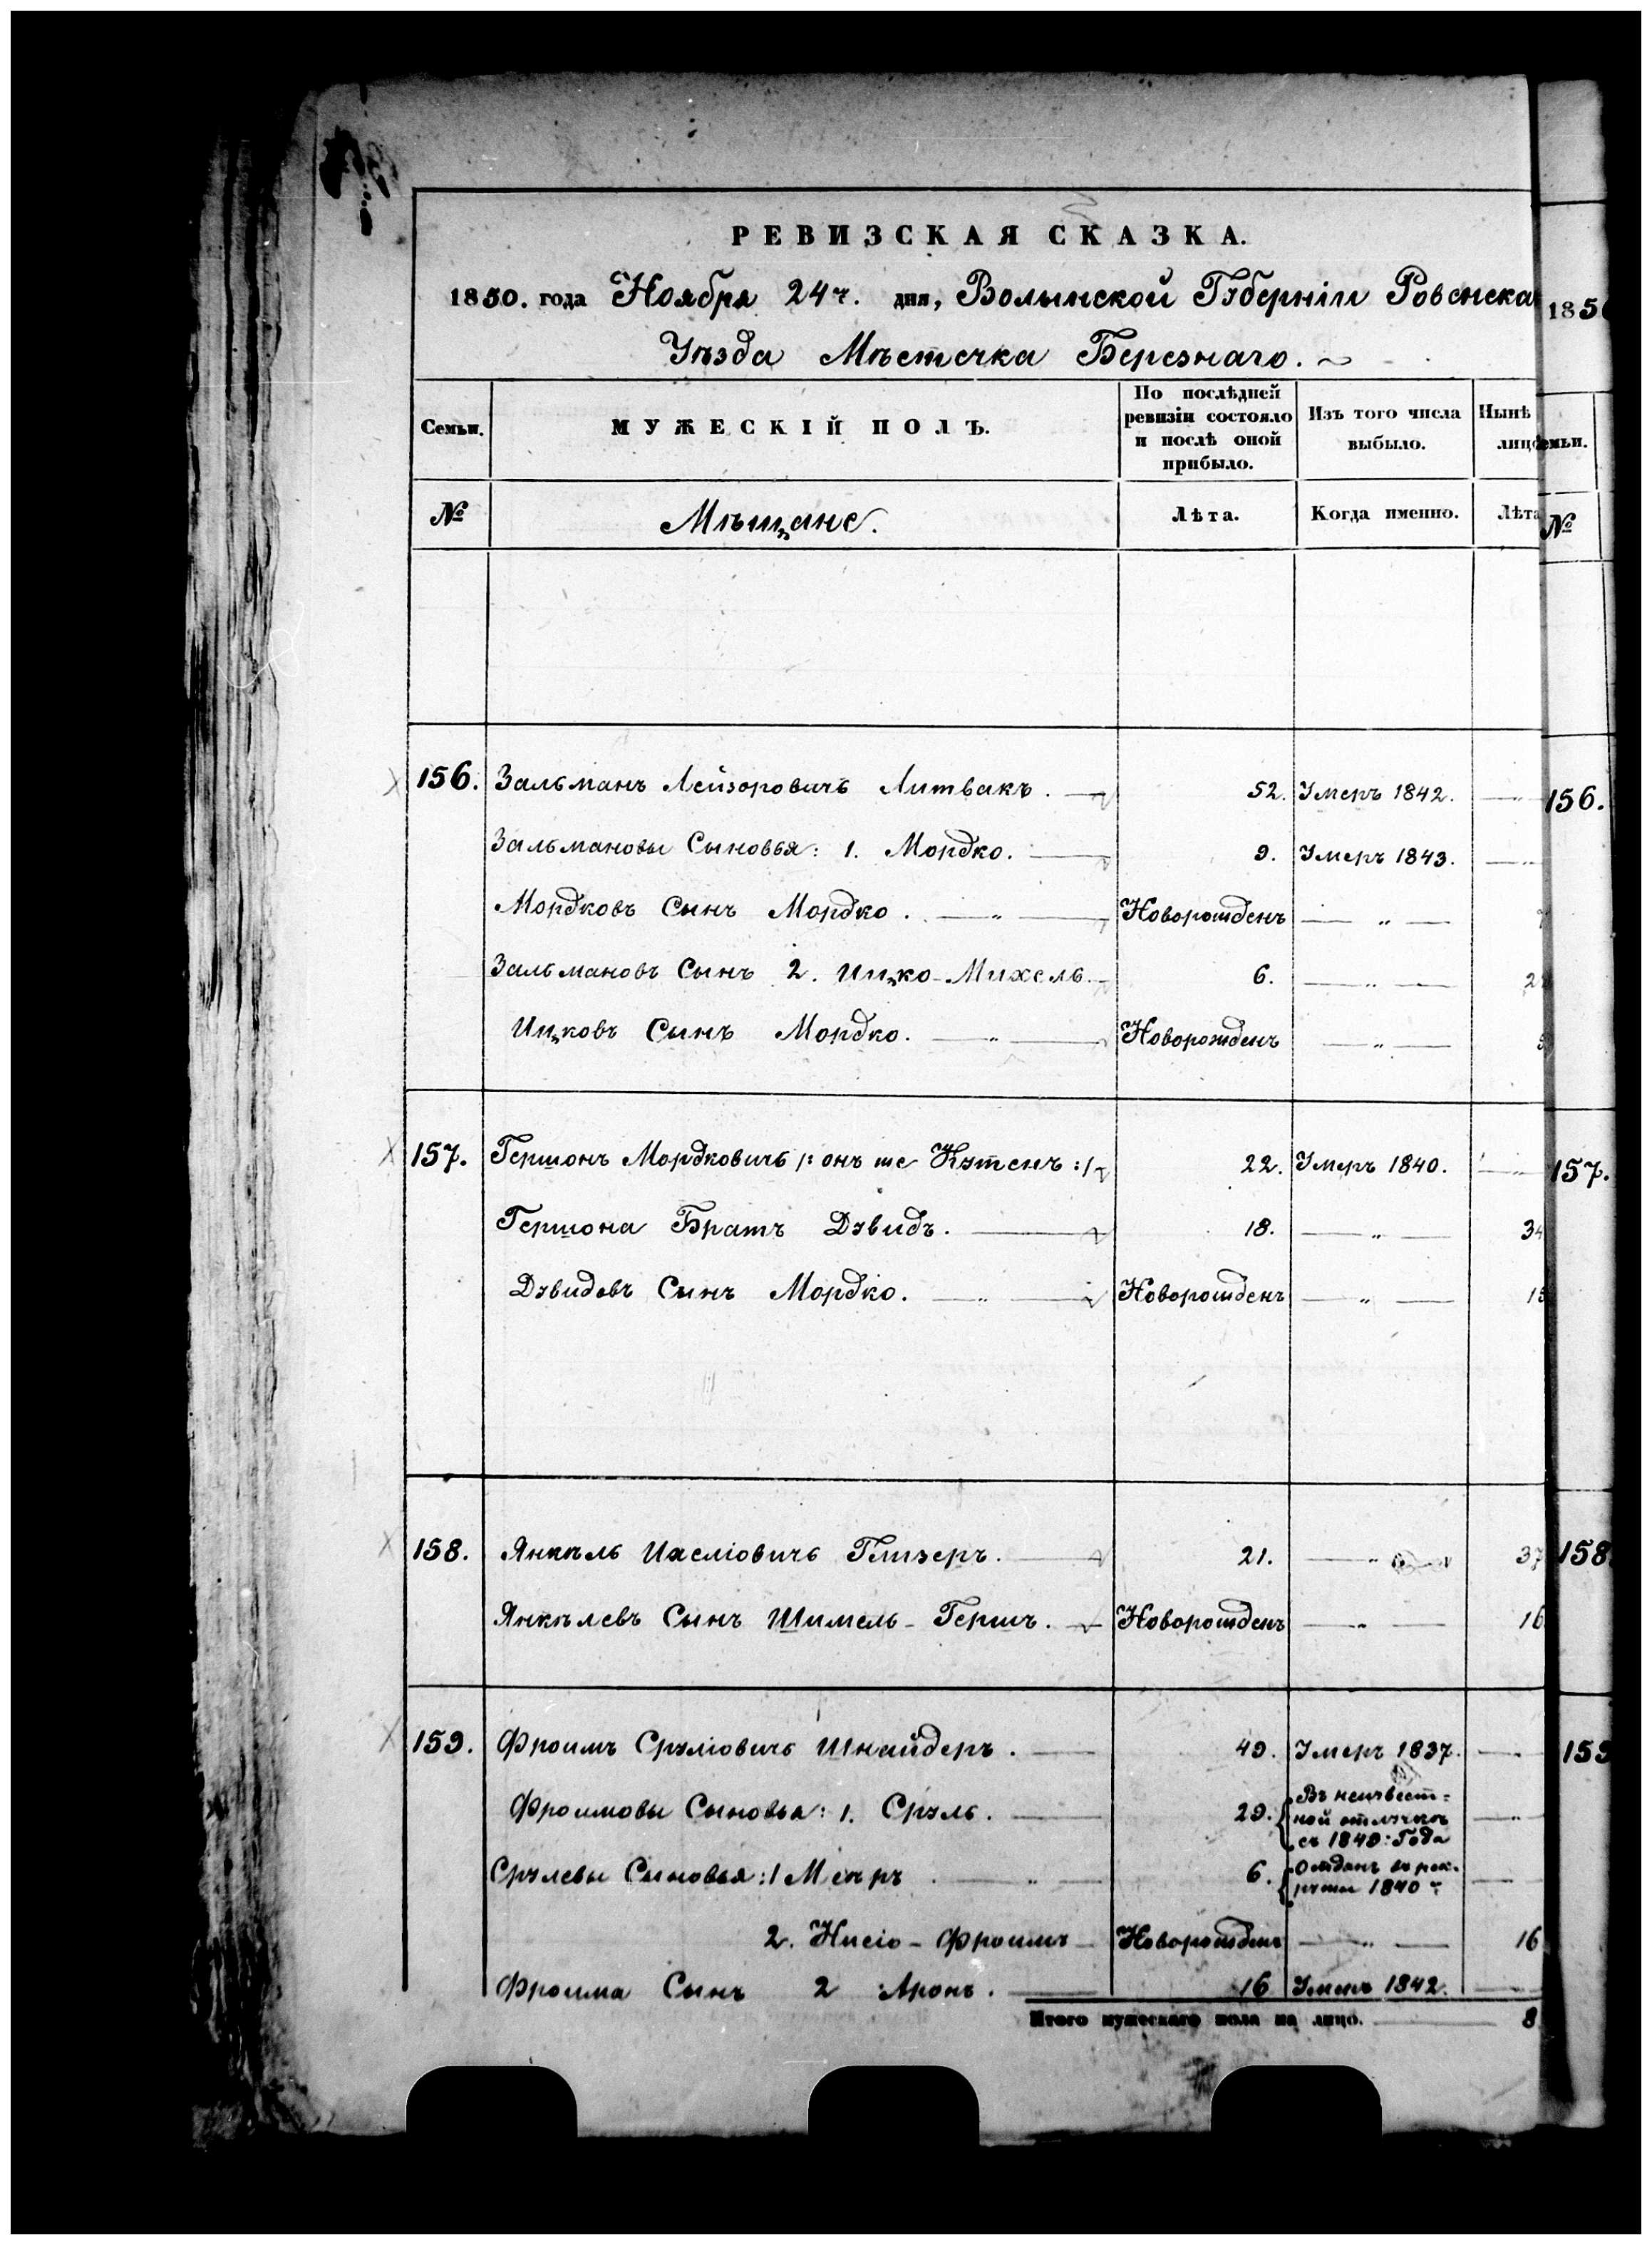 РЕВИЗСКАЯ СКАЗКА.
1850. года Ноября 24 ч. дня, Волынской Губерніи Ровенска
Уѣзда Мѣстечка Березнаго.
Семьи. МУЖЕСКІЙ ПОЛЪ. По послѣдней ревизіи состояло и послѣ оной прибыло. Изъ того числа выбыло. Нынѣ лицо
№ Мѣщане. Лѣта. Когда именно. Лѣта
156. Зальманъ Лейзоровичъ Литвакъ. 52. Умеръ 1842.
Зальмановы Сыновья: 1. Мордко. 9. Умеръ 1843.
Мордковъ Сынъ Мордко. Новорожденъ
Зальмановъ Сынъ 2. Ицко-Михель. 6.
Ицковъ Сынъ Мордко. Новорожденъ
157. Гершонъ Мордковичъ /: онъ же Кутенъ :/ 22. Умеръ 1840.
Гершона Братъ Дувидъ. 18. 34
Дувидовъ Сынъ Мордко. Новорожденъ
158. Янкѣль Иосліовичъ Глизеръ. 21. 37
Янкѣлевъ Сынъ Шимель-Гершъ. Новорожденъ 16
159. Фроимъ Сруліовичъ Шнайдеръ. 49. Умеръ 1837.
Фроимовы Сыновья: 1. Сруль. 29. Въ неизвест=
ной отлучкѣ
съ 1849: Года
Срулевы Сыновья: 1 Меѣръ 6. Отданъ въ рек-
руты 1840
2. Нисіо-Фроимъ Новорожденъ 16
Фроима Сынъ 2 Аронъ. 16 Умеръ 1842.
Итого мужескаго пола на лицо. 8
185
емьи.
№
156.
157.
158
159